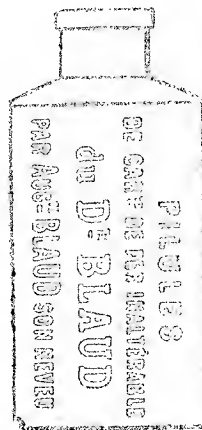 PILULES
DE CARTE DE FER INALTÉRABLE
du Dr. BLAUD
PAR AUGte BLAUD SON NEVEU